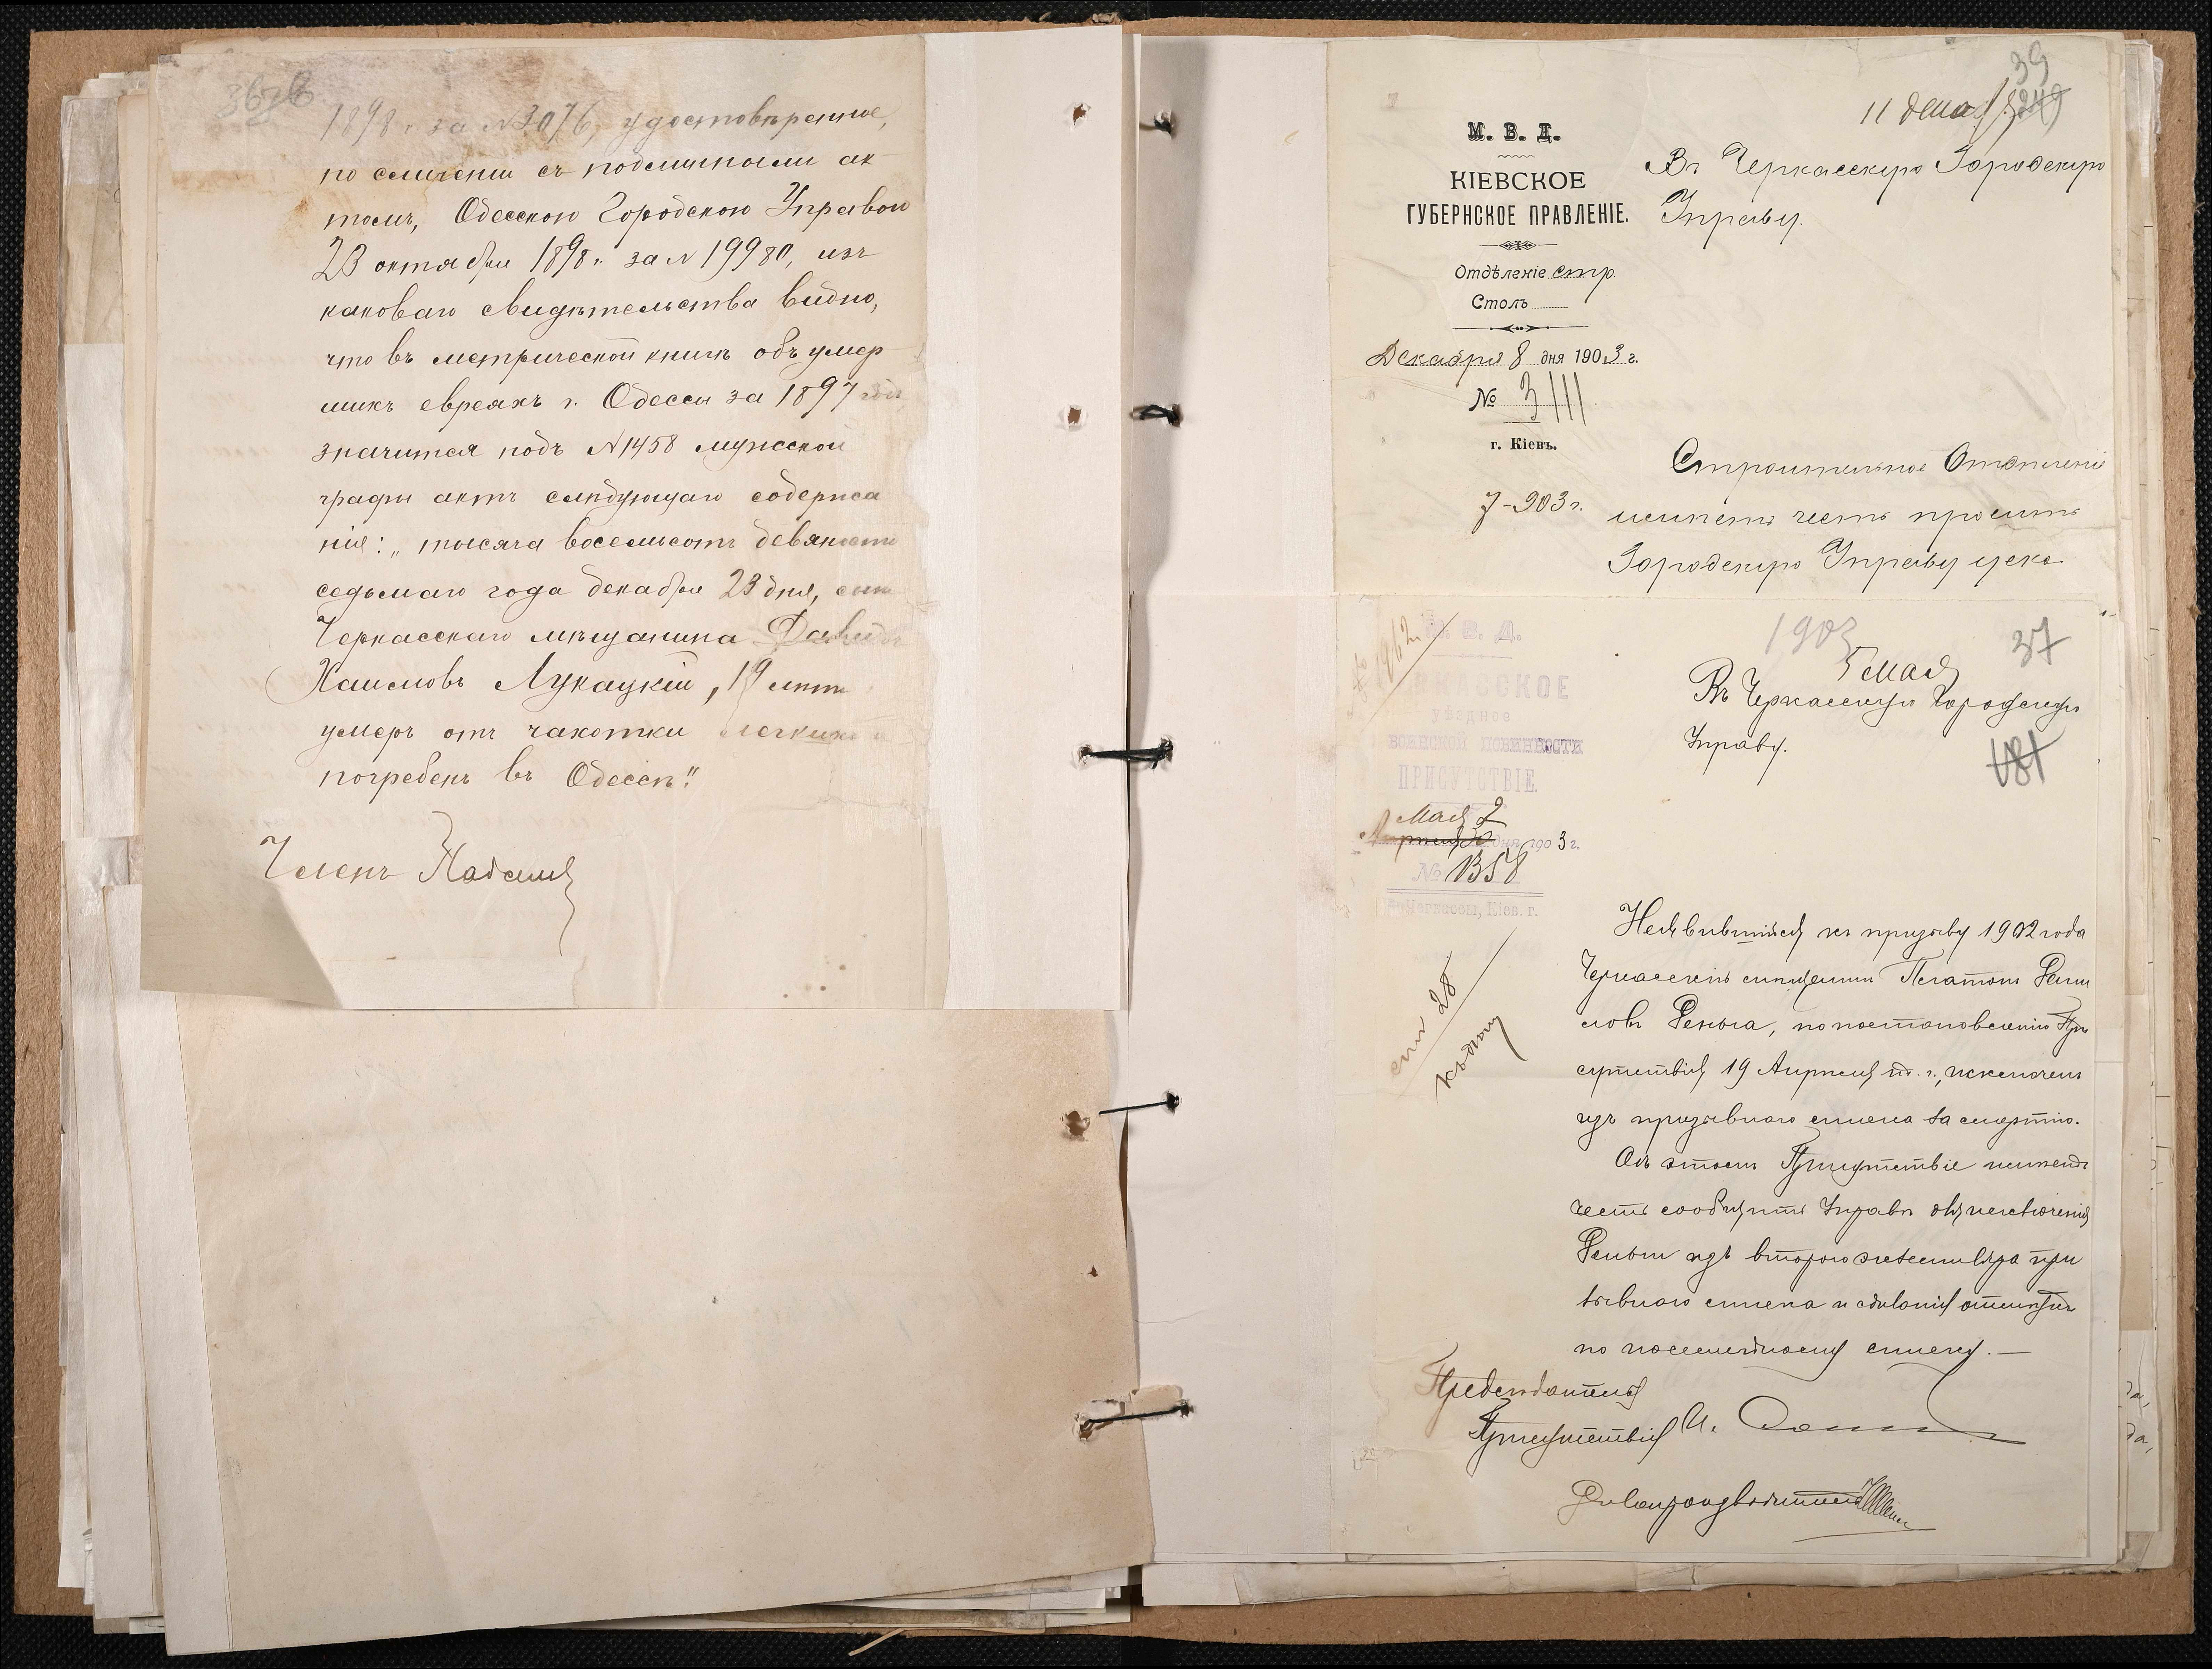 1898 г. за N3076, удостовѣренное,
по сличеніи съ подлиннымъ ак
томъ, Одесскою Городскою Управою
23 октября 1898 г. за N 19980, изъ
каковаго свидѣтельства видно,
что въ метрической книгѣ объ умер
шихъ евреяхъ г. Одессы за 1897 годъ
значится подъ N1458 мужской
графы актъ слѣдующаго содержа
нія: „тысяча восемьсотъ девяносто
седьмаго года декабря 23 дня, сынъ
Черкасскаго мѣщанина Давидъ
Хаимовъ Лукацкій, 19 лѣтъ
умеръ отъ чахотки легкихъ и
погребенъ въ Одессѣ."
Членъ
39
11 дека
М. В. Д.
КІЕВСКОЕ
ГУБЕРНСКОЕ ПРАВЛЕНІЕ.
Отдѣленіе стр.
Столъ
Декабря 8 дня 1903 г.
№ 3111
г. Кіевъ.
7-903 г.
Въ Черкасскую Городскую
Управу.
Строительное Отдѣленіе
имѣетъ честь просить
Городскую Управу уско
1903
37
5 мая
М. В. Д.
УѢЗДНОЕ
ВОИНСКОЙ ПОВИННОСТИ
ПРИСУТСТВІЕ.
Мая 2
дня 1903 г.
№ 1358
г. Черкассы, Кіев. г.
Въ Черкасскую Городскую
Управу.
481
Неявившійся къ призыву 1902 года
Черкасскій мѣщанинъ Платонъ
по постановленію При
сутствія 19 Апрѣля с. г., исключенъ
изъ призывнаго списка за смертію.
Объ этомъ Присутствіе имѣетъ
честь сообщить Управѣ для исключенія
изъ второго экземпляра при
зывнаго списка и дѣланія отмѣтки
по посемейному списку.—
Предсѣдатель
Присутствія
Дѣлопроизводитель